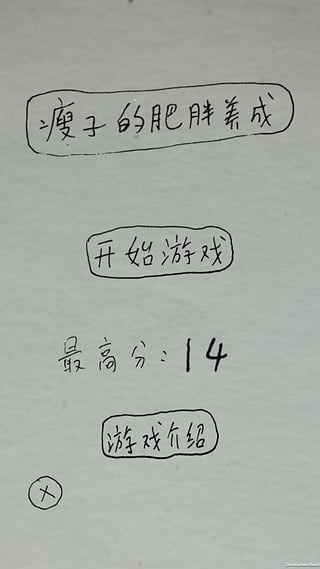 瘦子的肥胖养成
开始游戏
最高分:14
游戏介绍
X
Development Build